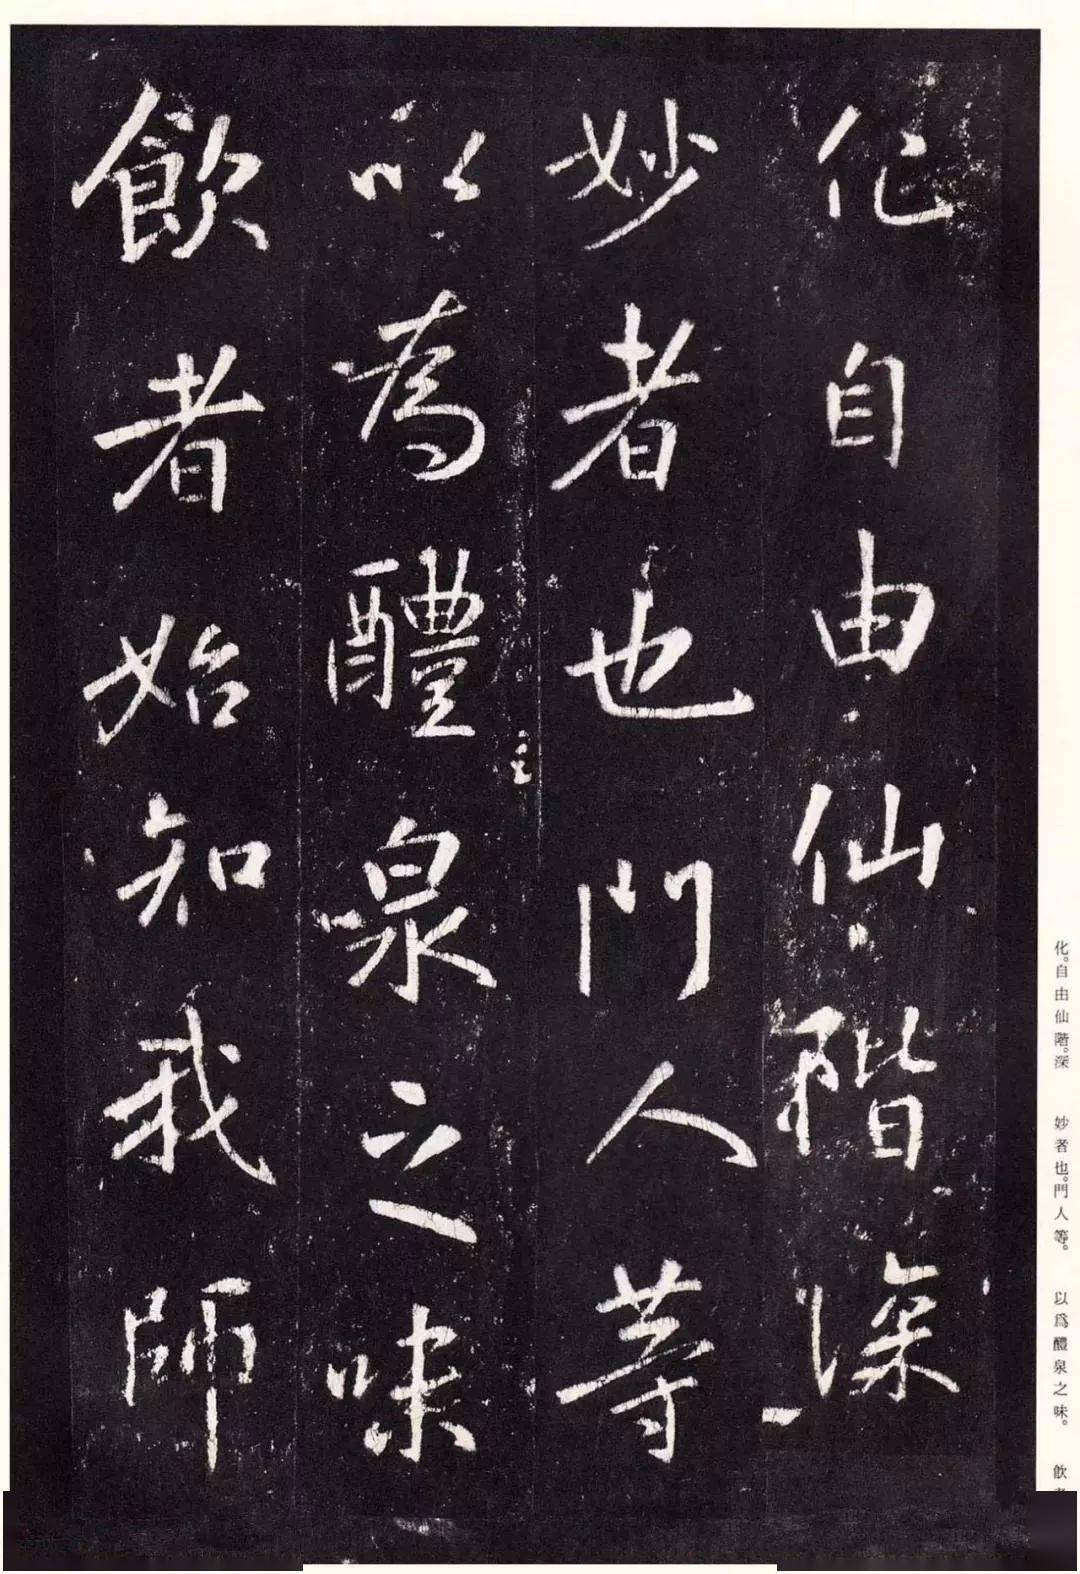 化自由仙階深
妙者也門人等
以為醴泉之味
飲者始知我師
化。自由仙階。深　妙者也。門人等。　以爲醴泉之味。　飲